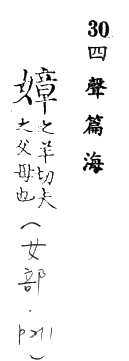 30 四聲篇海
嫜 之羊切夫
之父母也(女部.